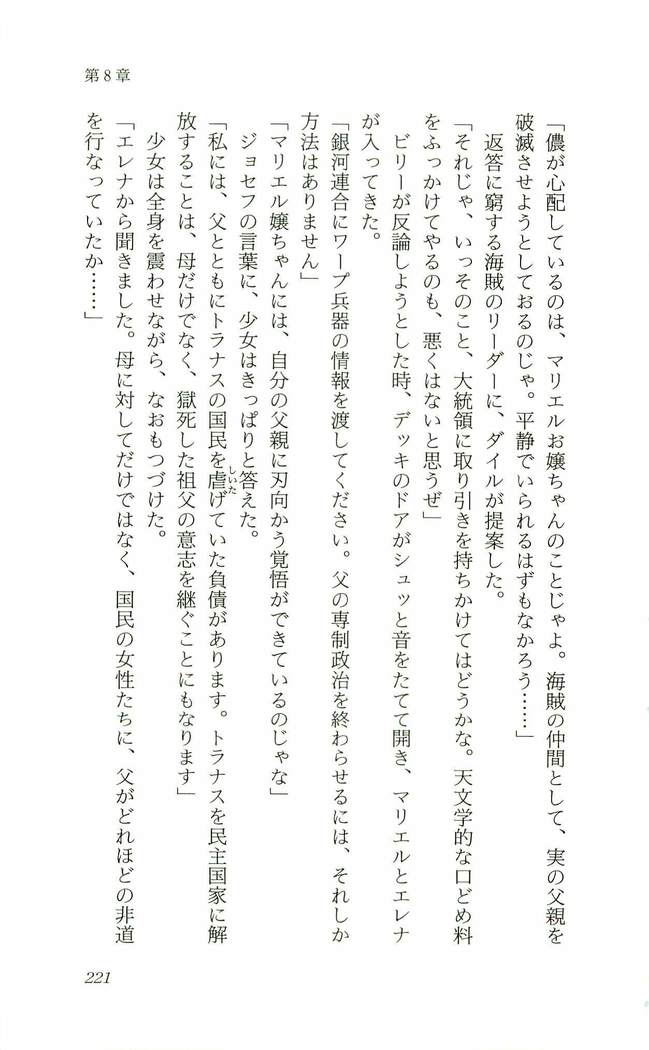 第8章
「儂が心配しているのは、マリエルお嬢ちゃんのことじゃよ。海賊の仲間として、実の父親を
破滅させようとしておるのじゃ。平静でいられるはずもなかろう……」
返答に窮する海賊のリーダーに、ダイルが提案した。
「それじゃ、いっそのこと、大統領に取り引きを持ちかけてはどうかな。天文学的な口どめ料
をふっかけてやるのも、悪くはないと思うぜ」
ビリーが反論しようとした時、デッキのドアがシュッと音をたてて開き、マリエルとエレナ
が入ってきた。
「銀河連合にワープ兵器の情報を渡してください。父の専制政治を終わらせるには、それしか
方法はありません」
「マリエル嬢ちゃんには、自分の父親に刃向かう覚悟ができているのじゃな」
ジョセフの言葉に、少女はきっぱりと答えた。
「私には、父とともにトラナスの国民を虐げていた負債があります。トラナスを民主国家に解
しいた
放することは、母だけでなく、獄死した祖父の意志を継ぐことにもなります」
少女は全身を震わせながら、なおもつづけた。
「エレナから聞きました。母に対してだけではなく、国民の女性たちに、父がどれほどの非道
を行なっていたか……」
221